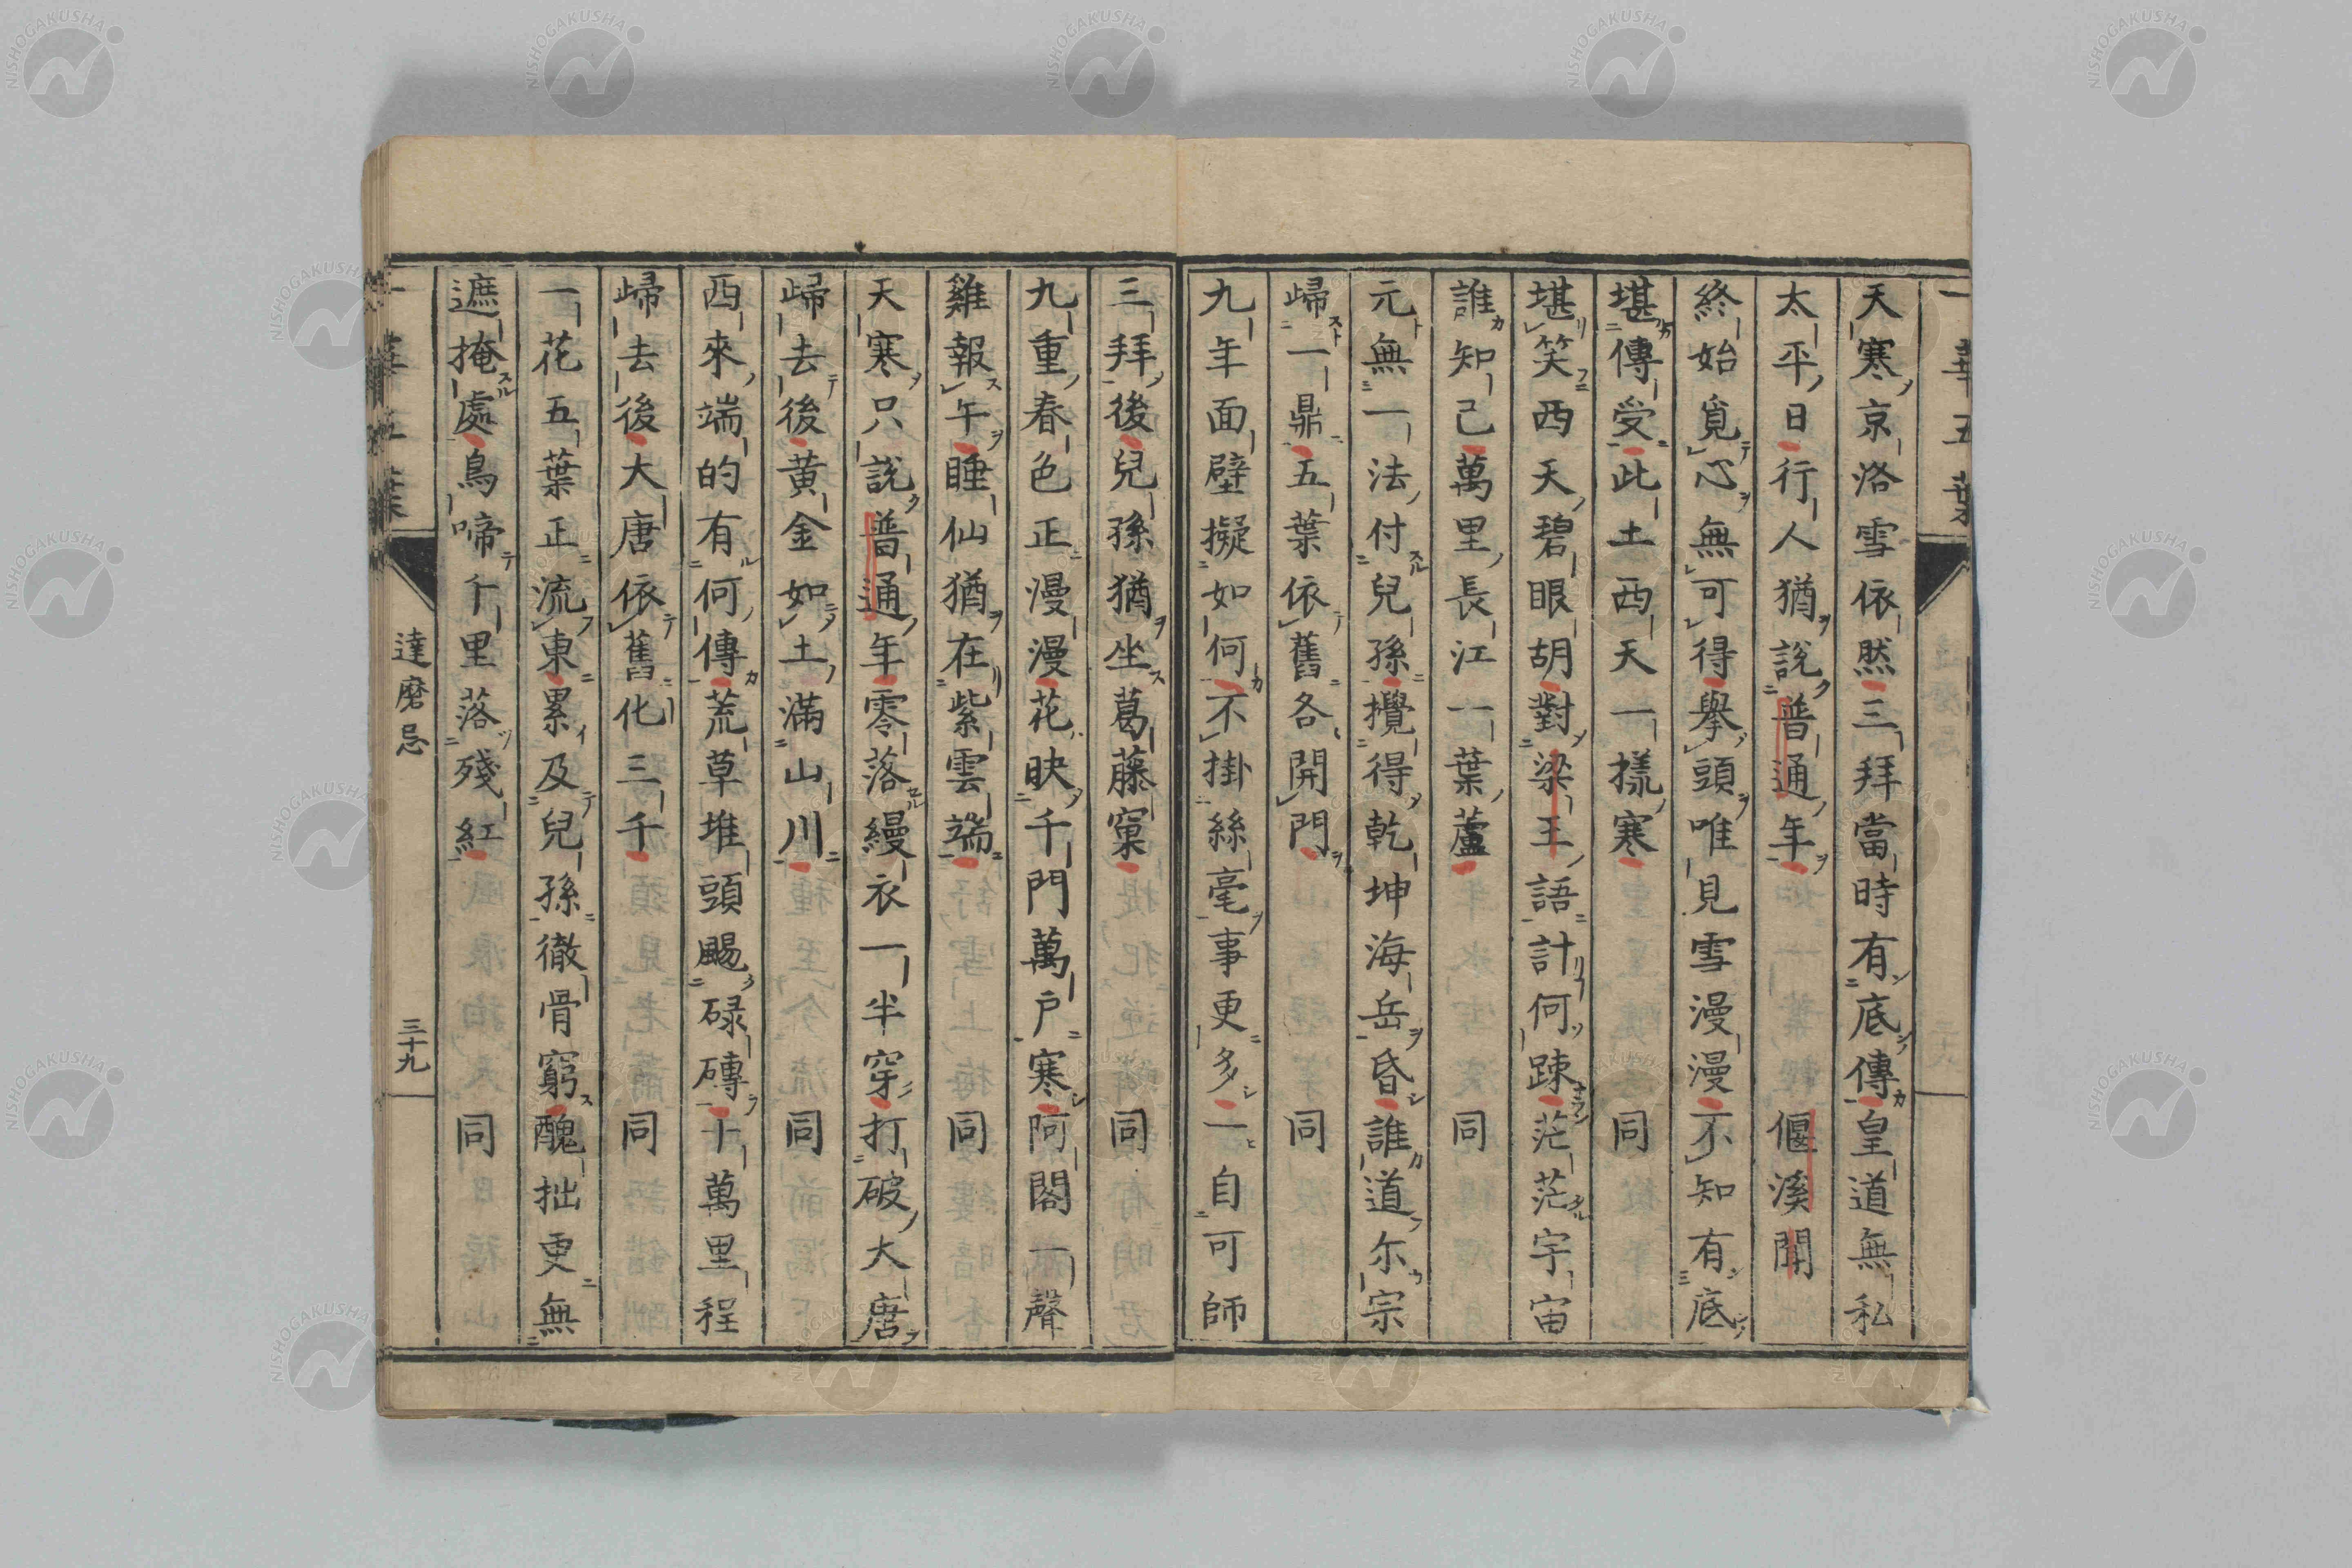 一華五葉
天寒京洛雪依然三拜當時有底傳皇道無私
太平日行人猶說普通年　偃溪聞
終始覓心無可得擧頭唯見雪漫漫不知有底
堪傳受此土西天一㨾寒　同
堪笑西天碧眼胡對梁王語計何踈茫茫宇宙
誰知己萬里長江一葉蘆　同
元無一法付兒孫攪得乾坤海岳昏誰道尓宗
歸一鼎五葉依舊各開門　同
九年面壁擬如何不掛絲毫事更多一自可師
三拜後兒孫猶坐葛藤窠　同
九重春色正漫漫花映千門萬戶寒阿閣一聲
雞報午睡仙猶在紫雲端　同
天寒只說普通年零落縵衣一半穿打破大唐
歸去後黄金如土滿山川　同
西來端的有何傳荒草堆頭颺碌磚十萬里程
歸去後大唐依舊化三千　同
一花五葉正流東累及兒孫徹骨窮醜拙更無
遮掩處鳥啼千里落殘紅　同
一華五葉　達磨忌　三十九
NISHOGAKUSHA